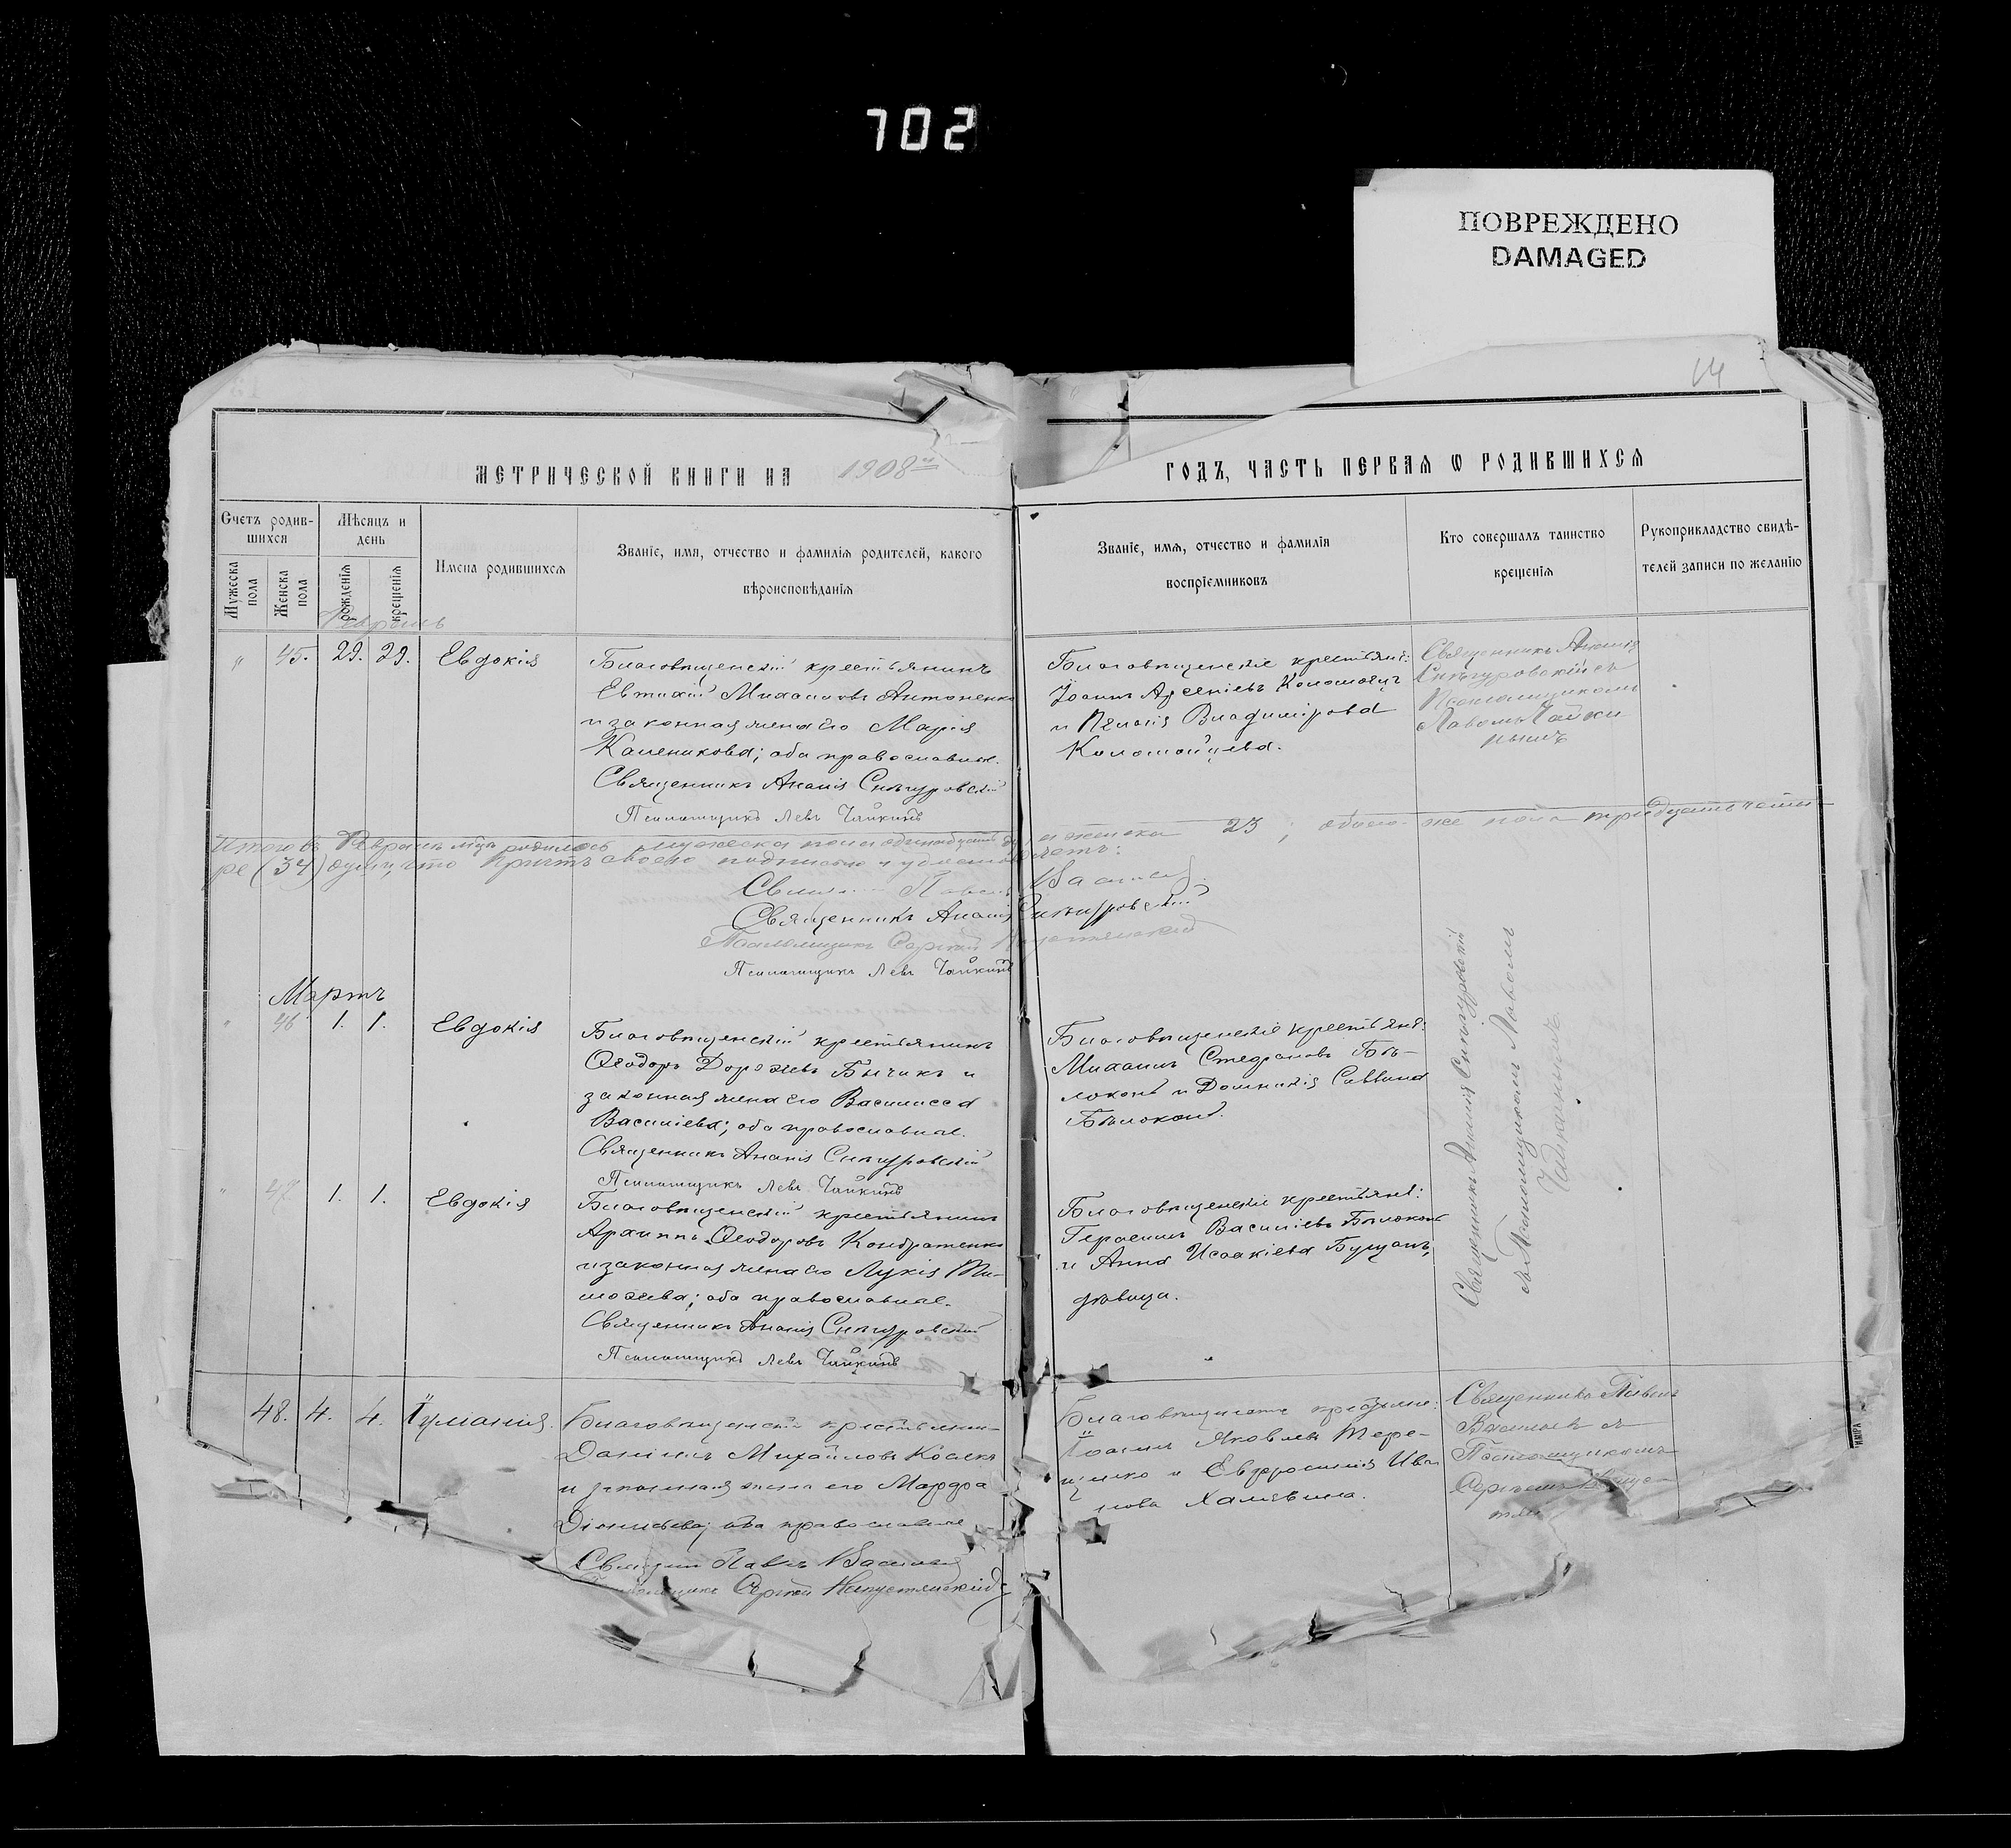 702
ПОВРЕЖДЕНО
DAMAGED
14
МЕТРИЧЕСКОЙ КНИГИ НА 1908 ГОДЪ, ЧАСТЬ ПЕРВАЯ Ѡ РОДИВШИХСЯ
Счетъ родив-
шихся
Мужеска пола
Женска пола
Мѣсяцъ и
день
рожденія
крещенія
Имена родившихся
Званіе, имя, отчество и фамилія родителей, какого
вѣроисповѣданія
Званіе, имя, отчество и фамилія
воспріемниковъ
Кто совершалъ таинство
крещенія
Рукоприкладство свидѣ-
телей записи по желанію
Февраль
" 45. 29. 29. Евдокія
Благовѣщенскій крестьянинъ
Евтихій Михаиловъ Антоненко
и законная жена его Марія
Каленикова; оба православные.
Священникъ Ананія Снѣгуровскій
Псаломщикъ Левъ Чайкинъ
Благовѣщенскіе крестьяне:
Іоаннъ Арсеніевъ Коломоецъ
и Пелагія Владимірова
Коломойцева.
Священникъ Ананія
Снѣгуровскій съ
Псаломщикомъ
Львомъ Чайки
нымъ
Итого въ Февралѣ м-цѣ родилось мужеска пола одинадцать и женска 23; обоего же пола тридцать четы-
ре (34) души, что причтъ своею подписью и удостовѣряетъ:
Священникъ Павелъ Васильев
Священникъ Ананія Снѣгуровскій
Псаломщикъ Сергій Капустянскій
Псаломщикъ Левъ Чайкинъ
Мартъ
" 46 1. 1. Евдокія
Благовѣщенскій крестьянинъ
Ѳеодоръ Дороѳеевъ Бычикъ и
законная жена его Василисса
Василіева; оба православные.
Священникъ Ананія Снѣгуровскій
Псаломщикъ Левъ Чайкинъ
Благовѣщенскіе крестьяне:
Михаилъ Стефановъ Бѣ-
локонь и Домникія Саввина
Бѣлоконь.
Священникъ Ананія Снѣгуровскій
съ Псаломщикомъ Львомъ
Чайкинымъ
" 47 1. 1. Евдокія
Благовѣщенскій крестьянинъ
Архиппъ Ѳеодоровъ Кондратенко
и законная жена его Лукія Ти-
моѳеева; оба православные.
Священникъ Ананія Снѣгуровскій
Псаломщикъ Левъ Чайкинъ
Благовѣщенскіе крестьяне:
Герасимъ Василіевъ Бѣлоконь
и Анна Исаакіева Бущанъ,
дѣвица.
48. 4. 4. Іуліанія.
Благовѣщенскій крестьянин
Даніилъ Михайловъ Косякъ
и законная жена его Марфа
Діонисіева; оба православные
Священник Павелъ Васильев
Псаломщикъ Сергій Капустянскій
Благовѣщенскіе крестьяне:
Іоаннъ Яковлевъ Тере-
щенко и Евфросинія Ива
нова Халявина.
Священникъ Павелъ
Васильев съ
Псаломщикомъ
Сергіемъ Капус-